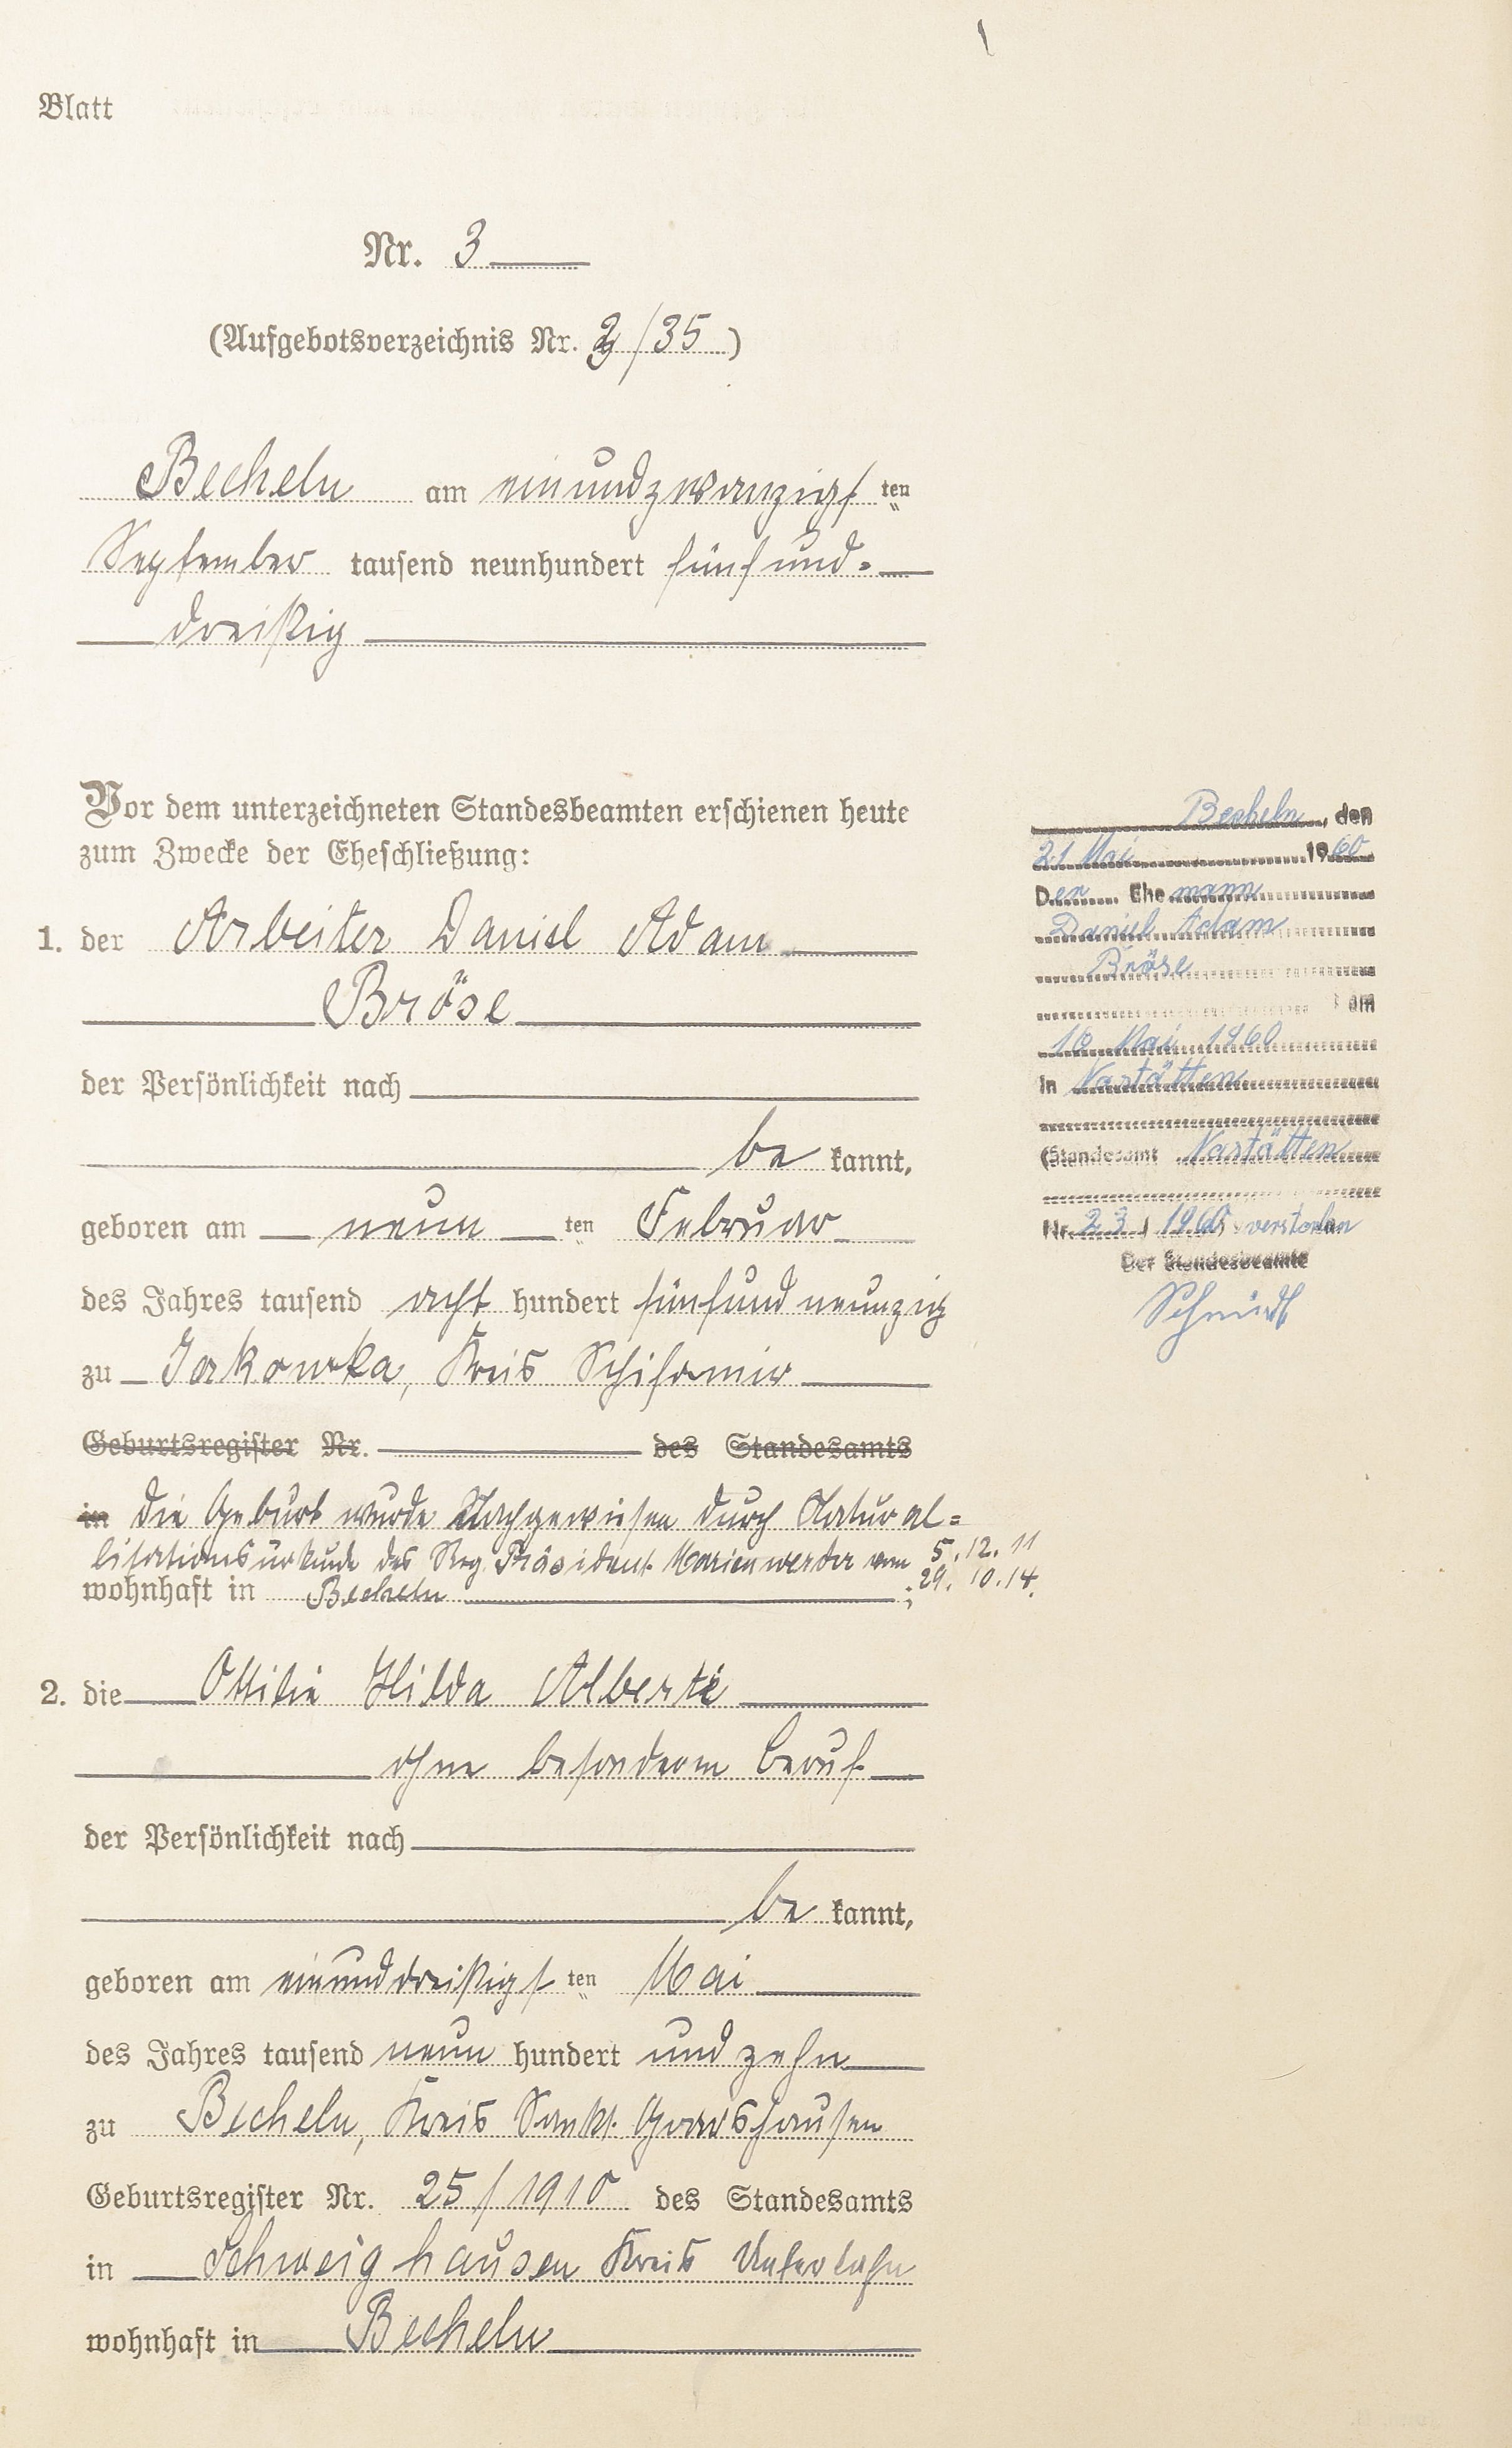 Blatt
Nr. 3
(Aufgebotsverzeichnis Nr. 3/35)
Becheln am einundzwanzigsten
September tausend neunhundert fünfund-
dreißig
Vor dem unterzeichneten Standesbeamten erschienen heute
zum Zwecke der Eheschließung:
1. der Arbeiter Daniel Adam
Bröse
der Persönlichkeit nach
be kannt,
geboren am neun ten Februar
des Jahres tausend acht hundert fünfundneunzig
zu Jakowka, Kreis Schitomir
Geburtsregister Nr. des Standesamts
in Die Geburt wurde Nachgewiesen durch Natural-
lisationsurkunde des Reg. Präsident Marienwerder vom 5.12.11
29.10.14.
wohnhaft in Becheln ;
2. die Ottilie Hilda Alberti
ohne besonderem Beruf
der Persönlichkeit nach
be kannt,
geboren am einunddreißigsten Mai
des Jahres tausend neun hundert und zehn
zu Becheln, Kreis Sankt Goarshausen
Geburtsregister Nr. 25/1910 des Standesamts
in Schweighausen Kreis Unterlahn
wohnhaft in Becheln
Becheln, den
21 Mai 1960
Der Ehemann
Daniel Adam
Bröse
am
10 Mai 1960
in Nastätten
(Standesamt Nastätten
Nr. 23 / 1960 verstorben
Der Standesbeamte
Schmidt